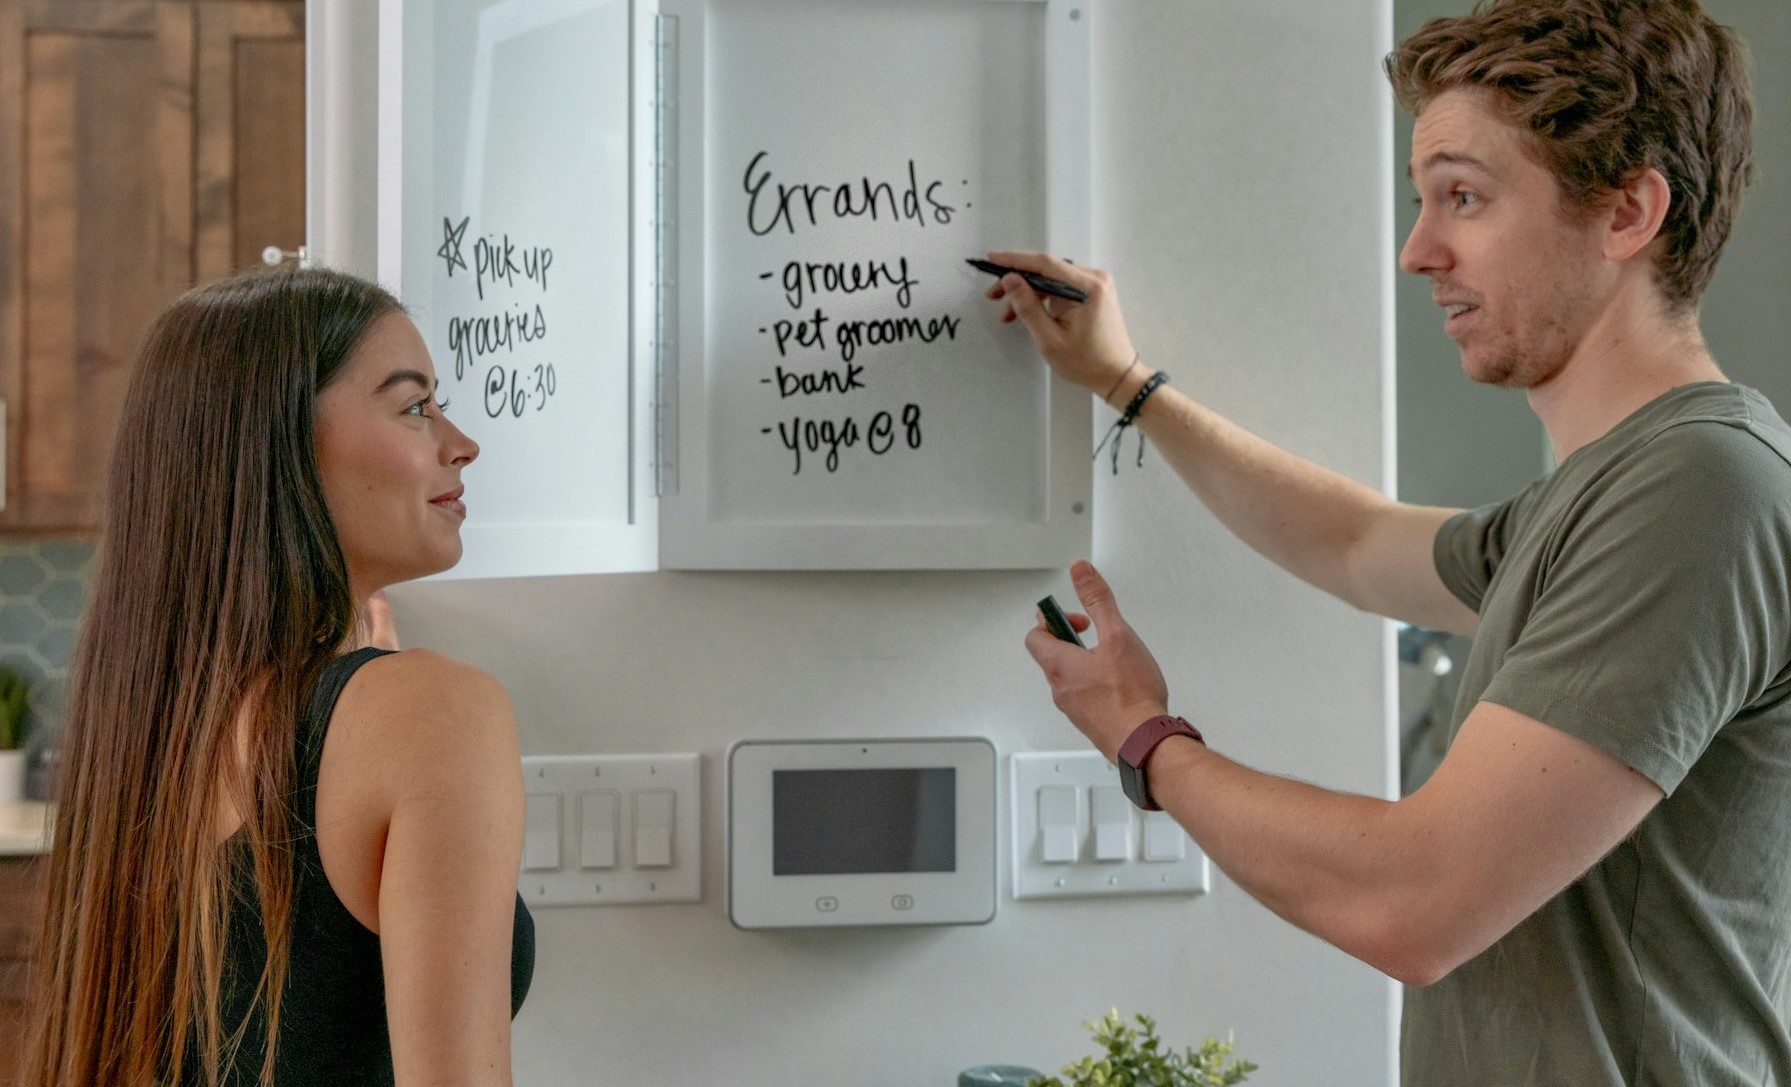 ☆ pick up
groceries
@6:30
Errands:
- grocery
- pet groomer
- bank
- yoga @ 8